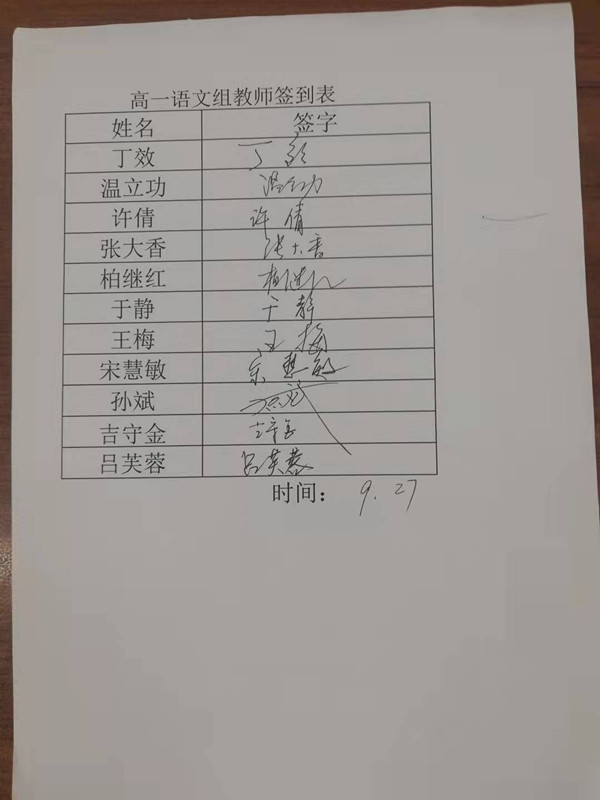 高一语文组教师签到表
姓名 签字
丁效 丁效
温立功 温立功
许倩 许倩
张大香 张大香
柏继红 柏继红
于静 于静
王梅 王梅
宋慧敏 宋慧敏
孙斌 孙斌
吉守金 吉守金
吕芙蓉 吕芙蓉
时间： 9.27